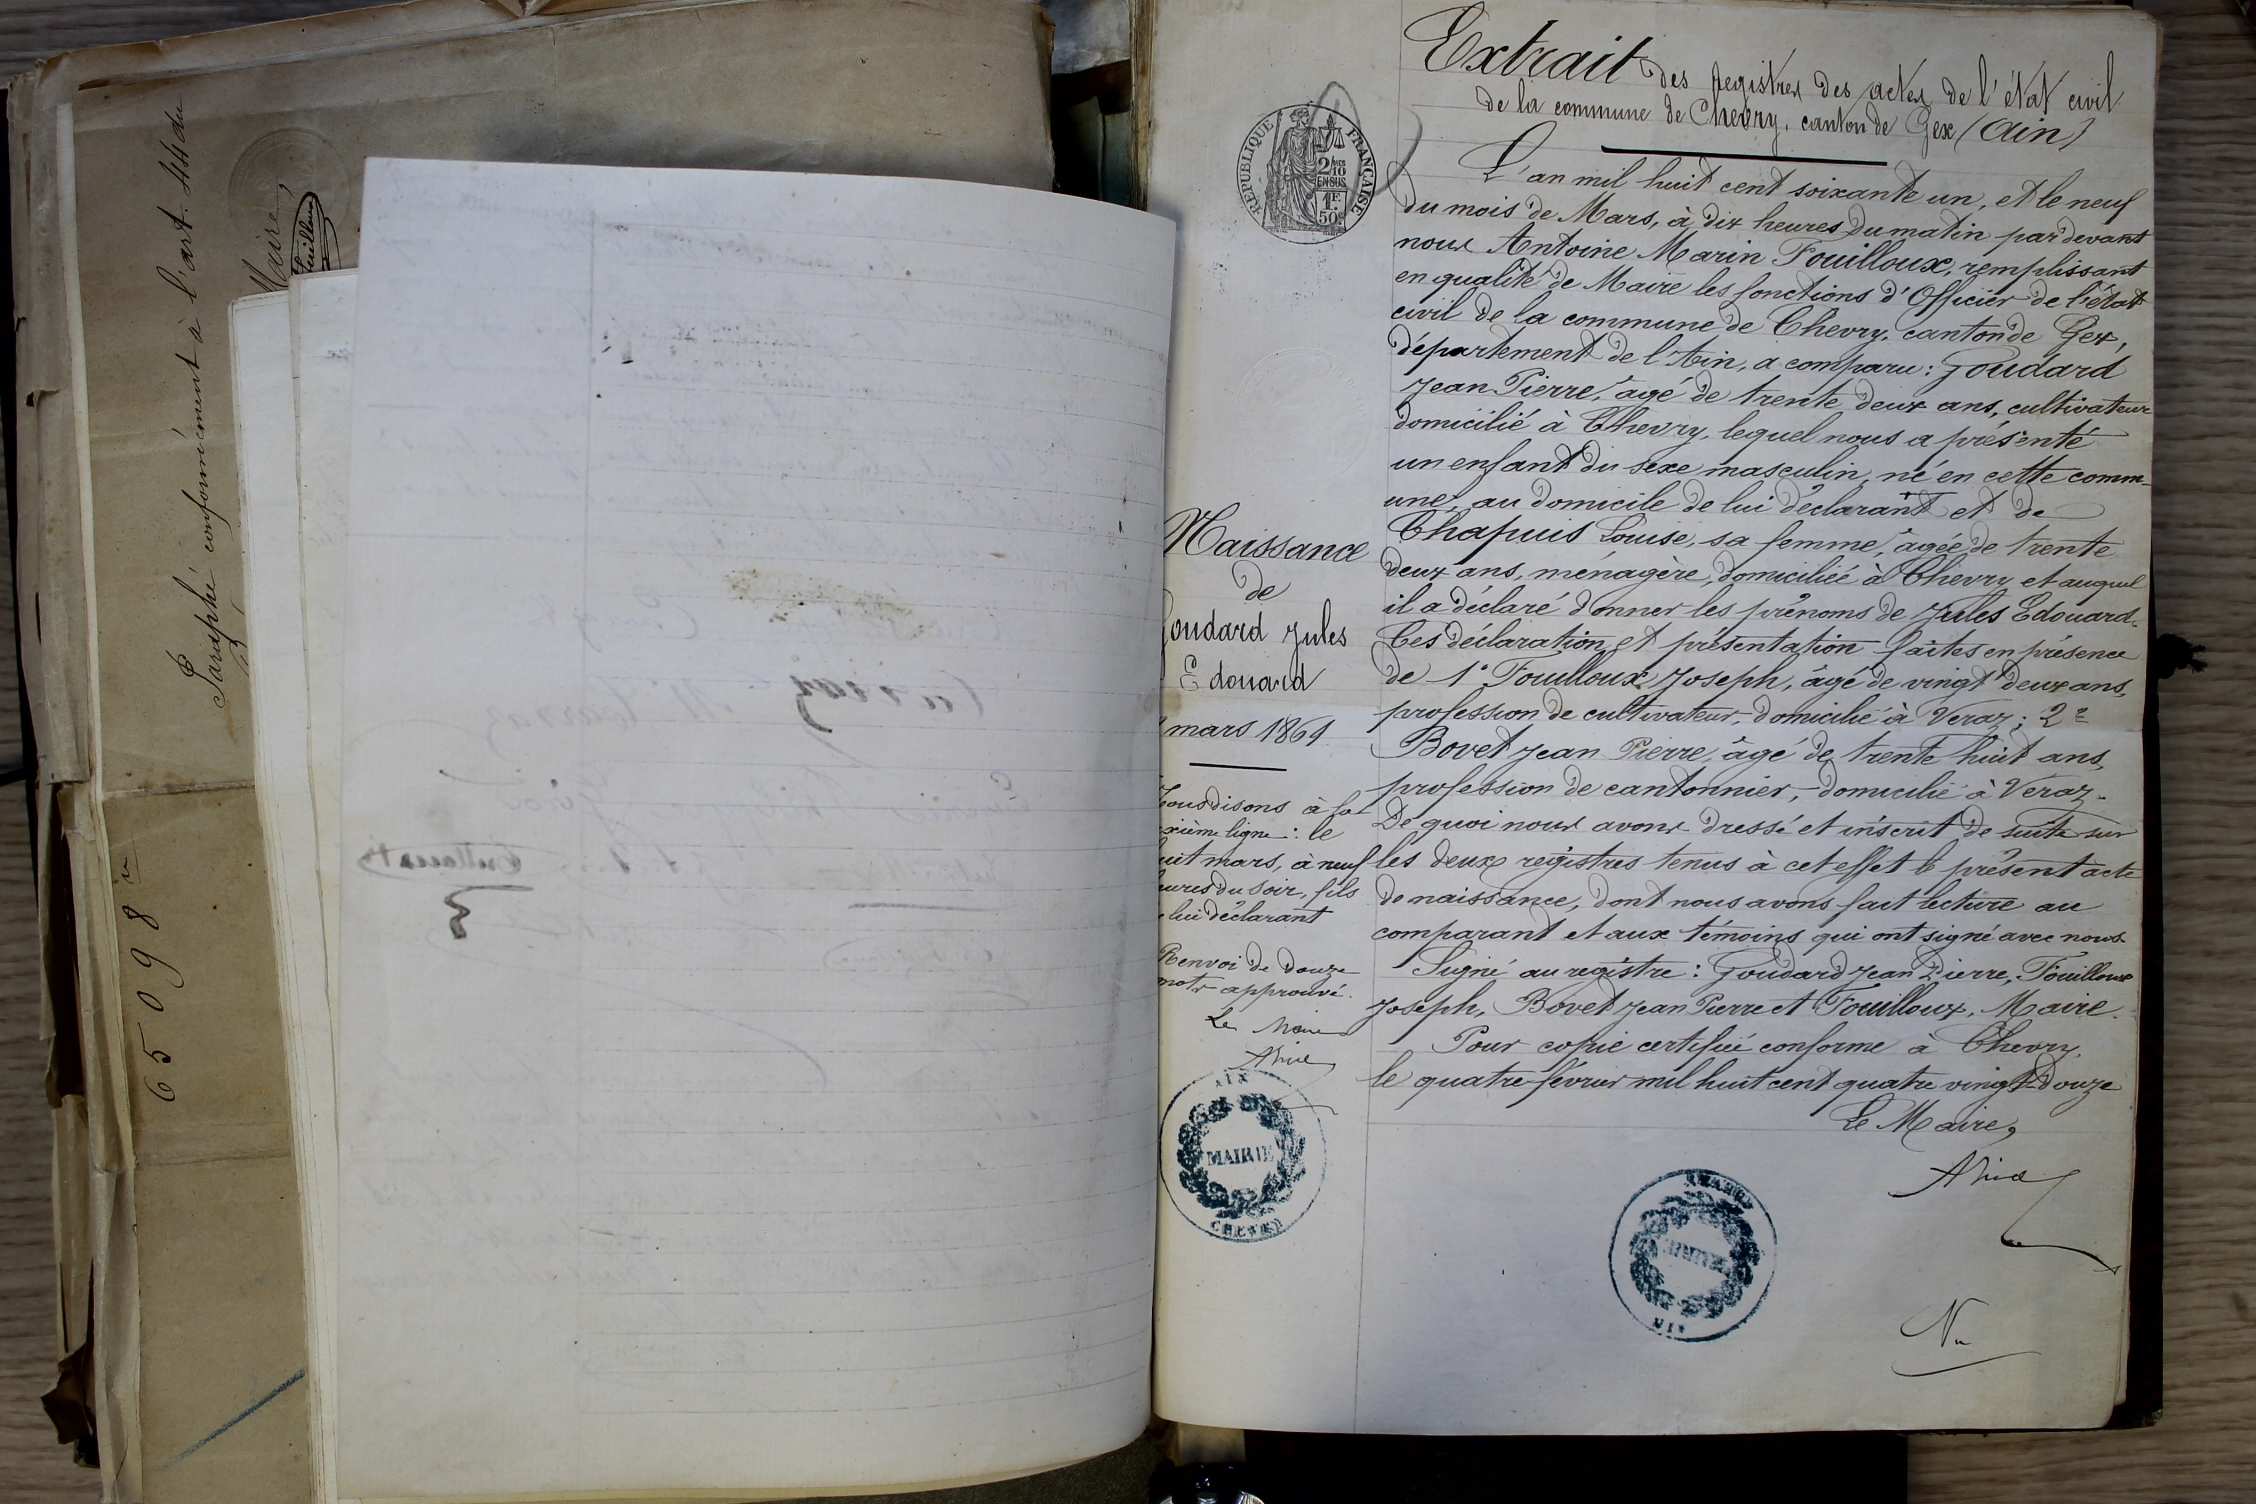 Paraphé conformément à l'art. 44 du
Maire,
Fuilloux
65098
Extrait des registres des actes de l'état civil
de la commune de Chevry, canton de Gex (Ain)
RÉPUBLIQUE FRANÇAISE
2/10
EN SUS
1F.
50c
L'an mil huit cent soixante un, et le neuf
du mois de Mars, à dix heures du matin par devant
nous Antoine Marin Fouilloux, remplissant
en qualité de Maire les fonctions d'Officier de l'état
civil de la commune de Chevry, canton de Gex,
département de l'Ain, a comparu: Goudard
Jean Pierre, âgé de trente deux ans, cultivateur
domicilié à Chevry, lequel nous a présenté
un enfant du sexe masculin, né en cette comm-
une, au domicile de lui déclarant et de
Chapuis Louise, sa femme, âgée de trente
deux ans, ménagère, domiciliée à Chevry et auquel
il a déclaré donner les prénoms de Jules Edouard.
Ces déclaration et présentation faites en présence
de 1° Fouilloux Joseph, âgé de vingt deux ans,
profession de cultivateur, domicilié à Veraz; 2e
Bovet Jean Pierre, âgé de trente huit ans,
profession de cantonnier, domicilié à Veraz.
De quoi nous avons dressé et inscrit de suite sur
les deux registres tenus à cet effet le présent acte
de naissance, dont nous avons fait lecture au
comparant et aux témoins qui ont signé avec nous
Signé au registre: Goudard Jean Pierre, Fouilloux
Joseph, Bovet Jean Pierre et Fouilloux, Maire.
Pour copie certifiée conforme à Chevry,
le quatre février mil huit cent quatre vingt-douze
Le Maire,
Vu
Naissance
de
Goudard Jules
Edouard
mars 1861
Nous disons à la
xième ligne: le
huit mars, à neuf
heures du soir, fils
de lui déclarant
Renvoi de douze
mots approuvé.
Le Maire
AIN
MAIRIE
CHEVRY
CHEVRY
MAIRIE
AIN